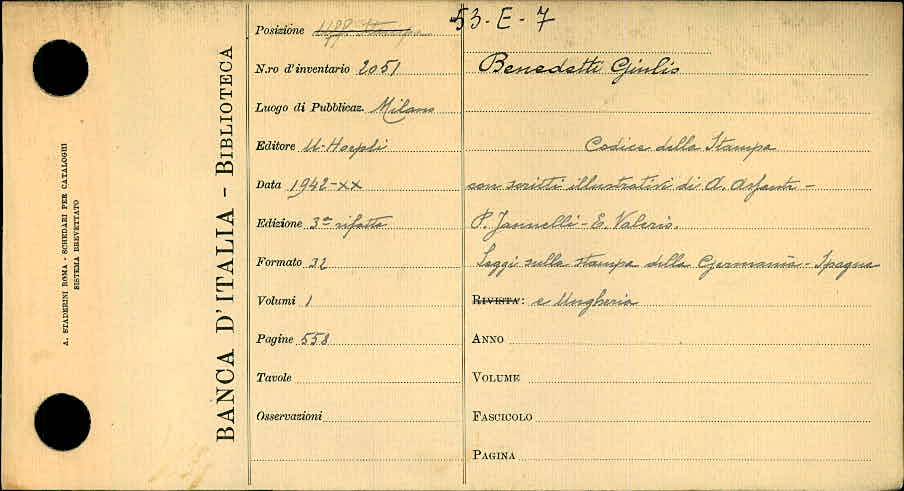 53-E-7
Posizione Uff. Stampa
N.ro d'inventario 2051
Luogo di Pubblicaz. Milano
Editore U-Hoepli
Data 1942-XX
Edizione 3ª rifatta
Formato 32
Volumi 1
Pagine 558
Tavole
Osservazioni
Benedetti Giulio
Codice della Stampa
con scritti illustrativi di A. Asfanti -
P. Jannelli - E. Valerio.
Leggi sulla stampa della Germania - Spagna
RIVISTA: e Ungheria
ANNO
VOLUME
FASCICOLO
PAGINA
BANCA D'ITALIA - BIBLIOTECA
A. STADERINI ROMA - SCHEDARI PER CATALOGHI
SISTEMA BREVETTATO